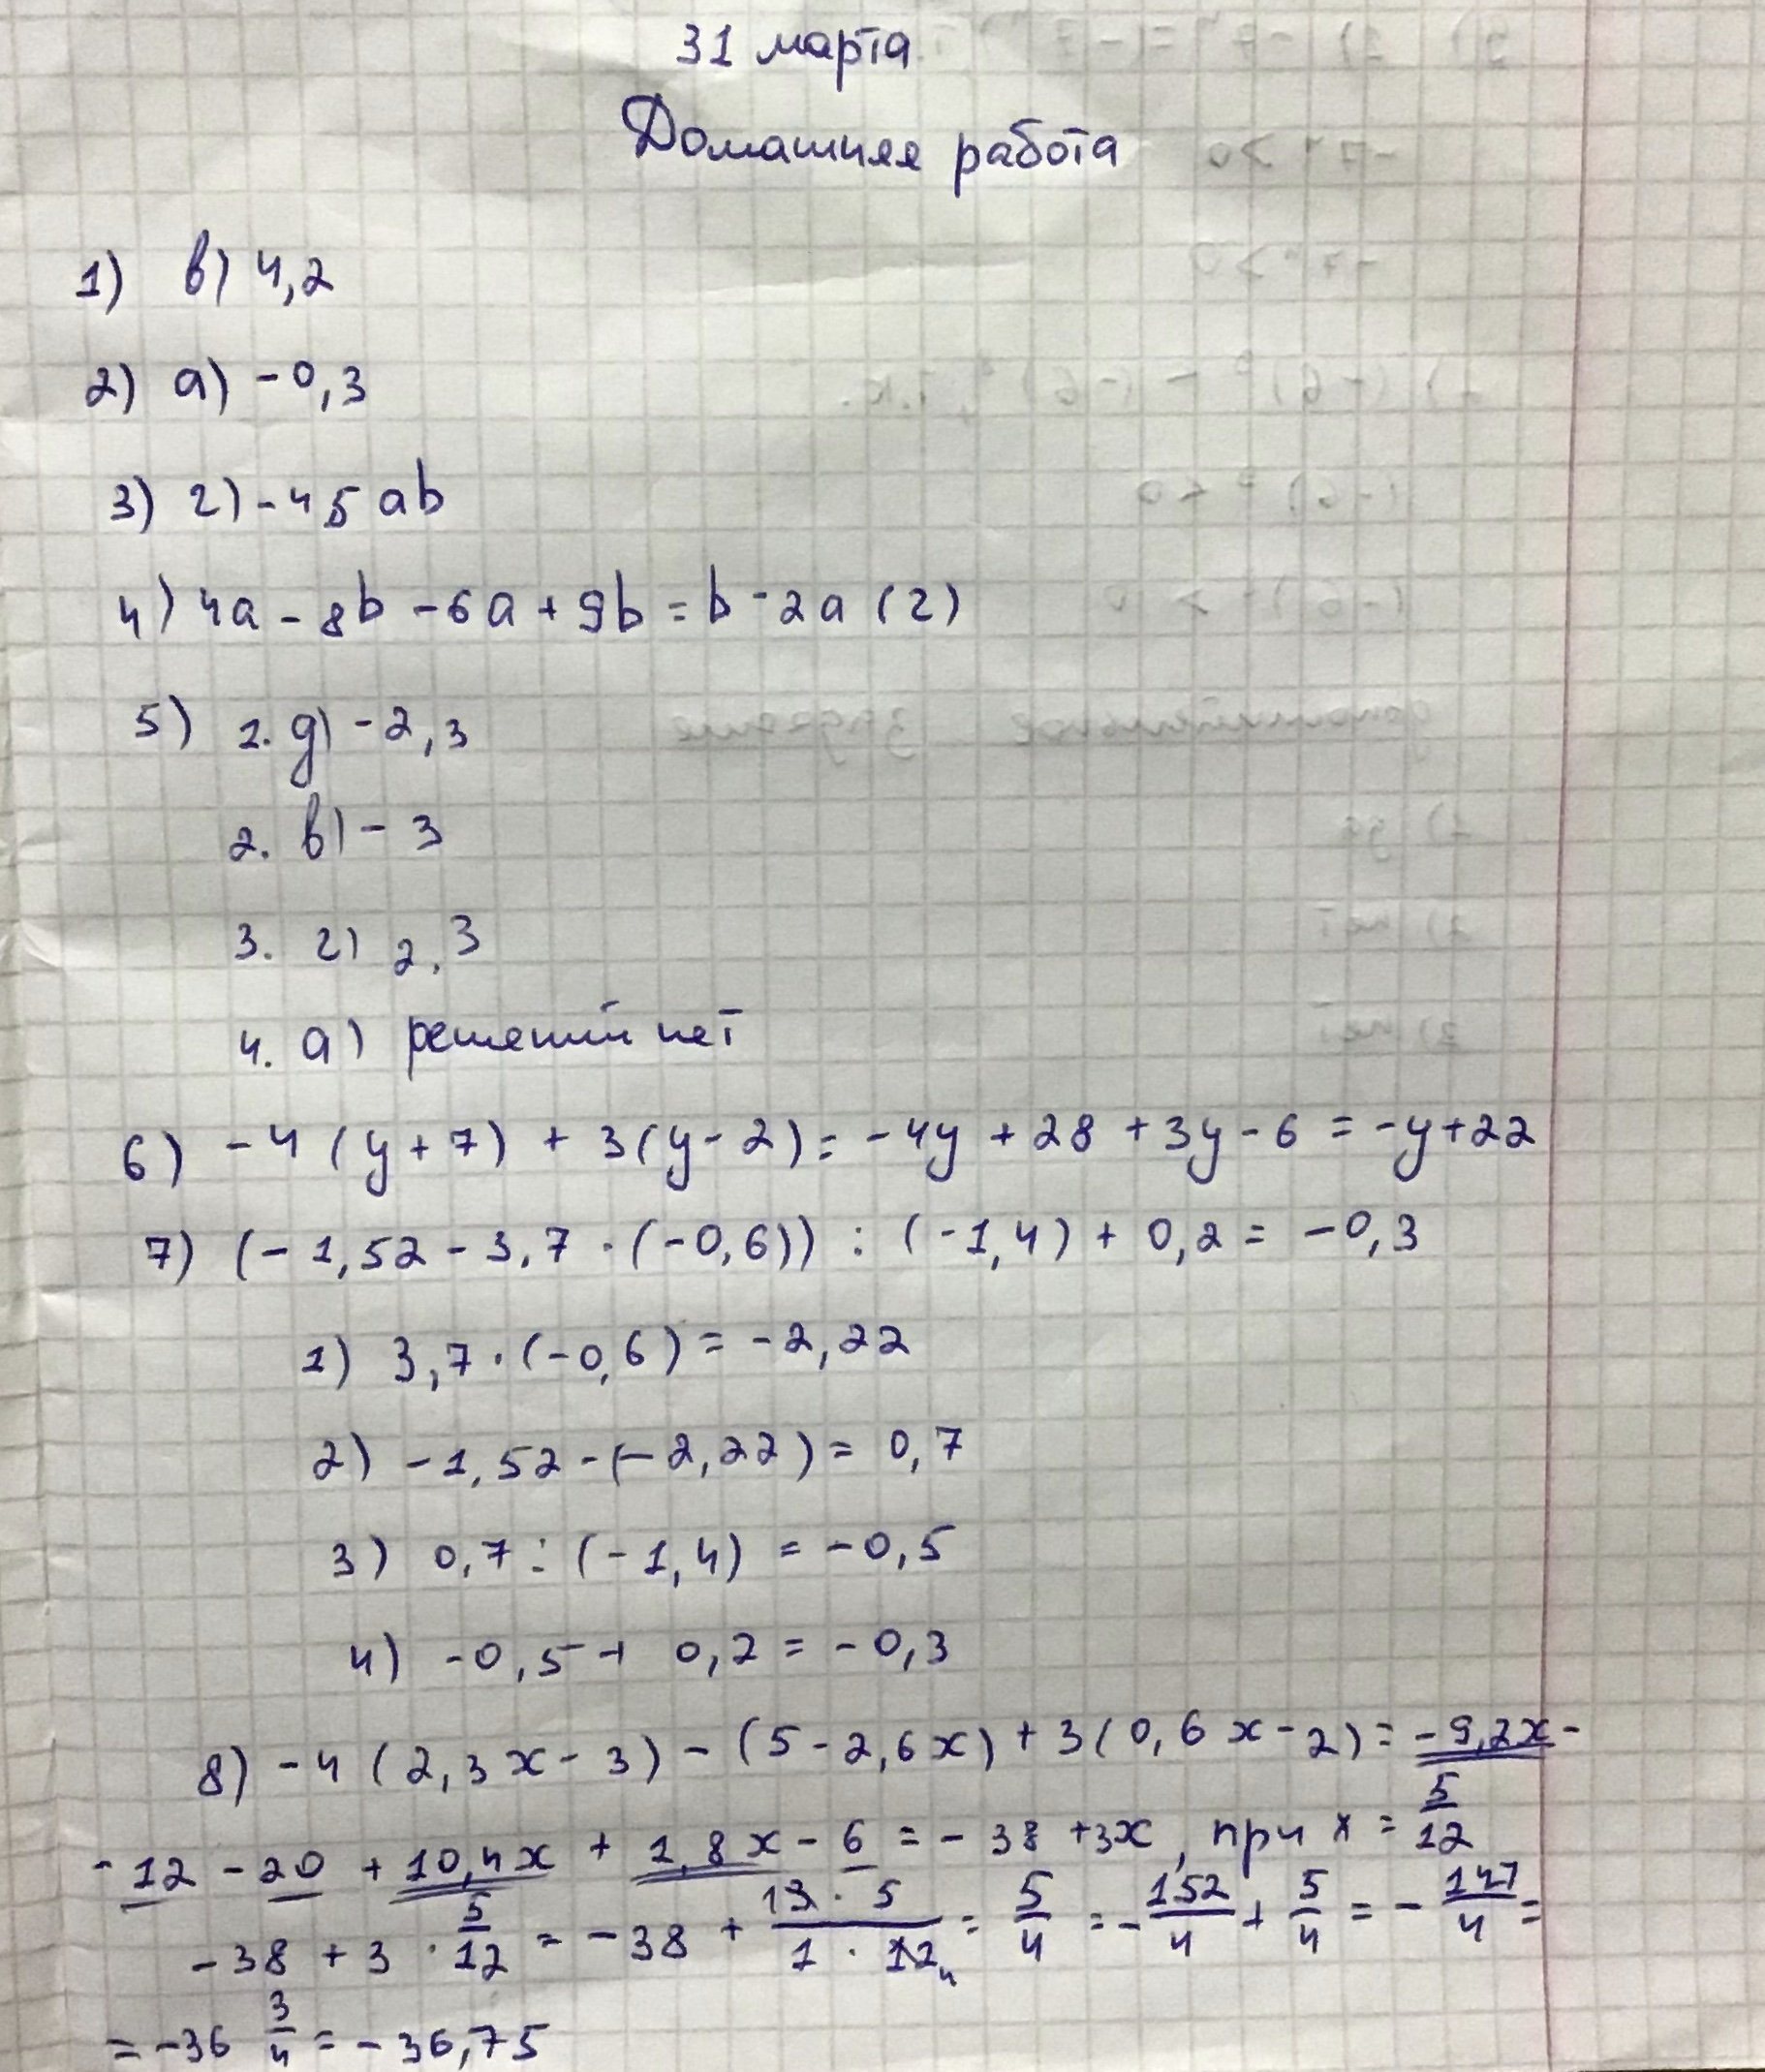 31 марта
Домашняя работа
1) в) 4,2
2) а) -0,3
3) г) -45ab
4) 4a - 8b - 6a + 9b = b - 2a (г)
5) 1. д) -2,3
2. в) -3
3. г) 2,3
4. а) решений нет
6) -4 (y + 7) + 3(y - 2) = -4y + 28 + 3y - 6 = -y + 22
7) (-1,52 - 3,7 · (-0,6)) : (-1,4) + 0,2 = -0,3
1) 3,7 · (-0,6) = -2,22
2) -1,52 - (-2,22) = 0,7
3) 0,7 : (-1,4) = -0,5
4) -0,5 + 0,2 = -0,3
8) -4 (2,3x - 3) - (5 - 2,6x) + 3(0,6x - 2) = -9,2x -
-12 - 20 + 10,4x + 1,8x - 6 = -38 + 3x, при x = 5/12
-38 + 3 · 5/12 = -38 + 13 · 5/1 · 12 4 = 5/4 = -152/4 + 5/4 = -147/4 =
= -36 3/4 = -36,75